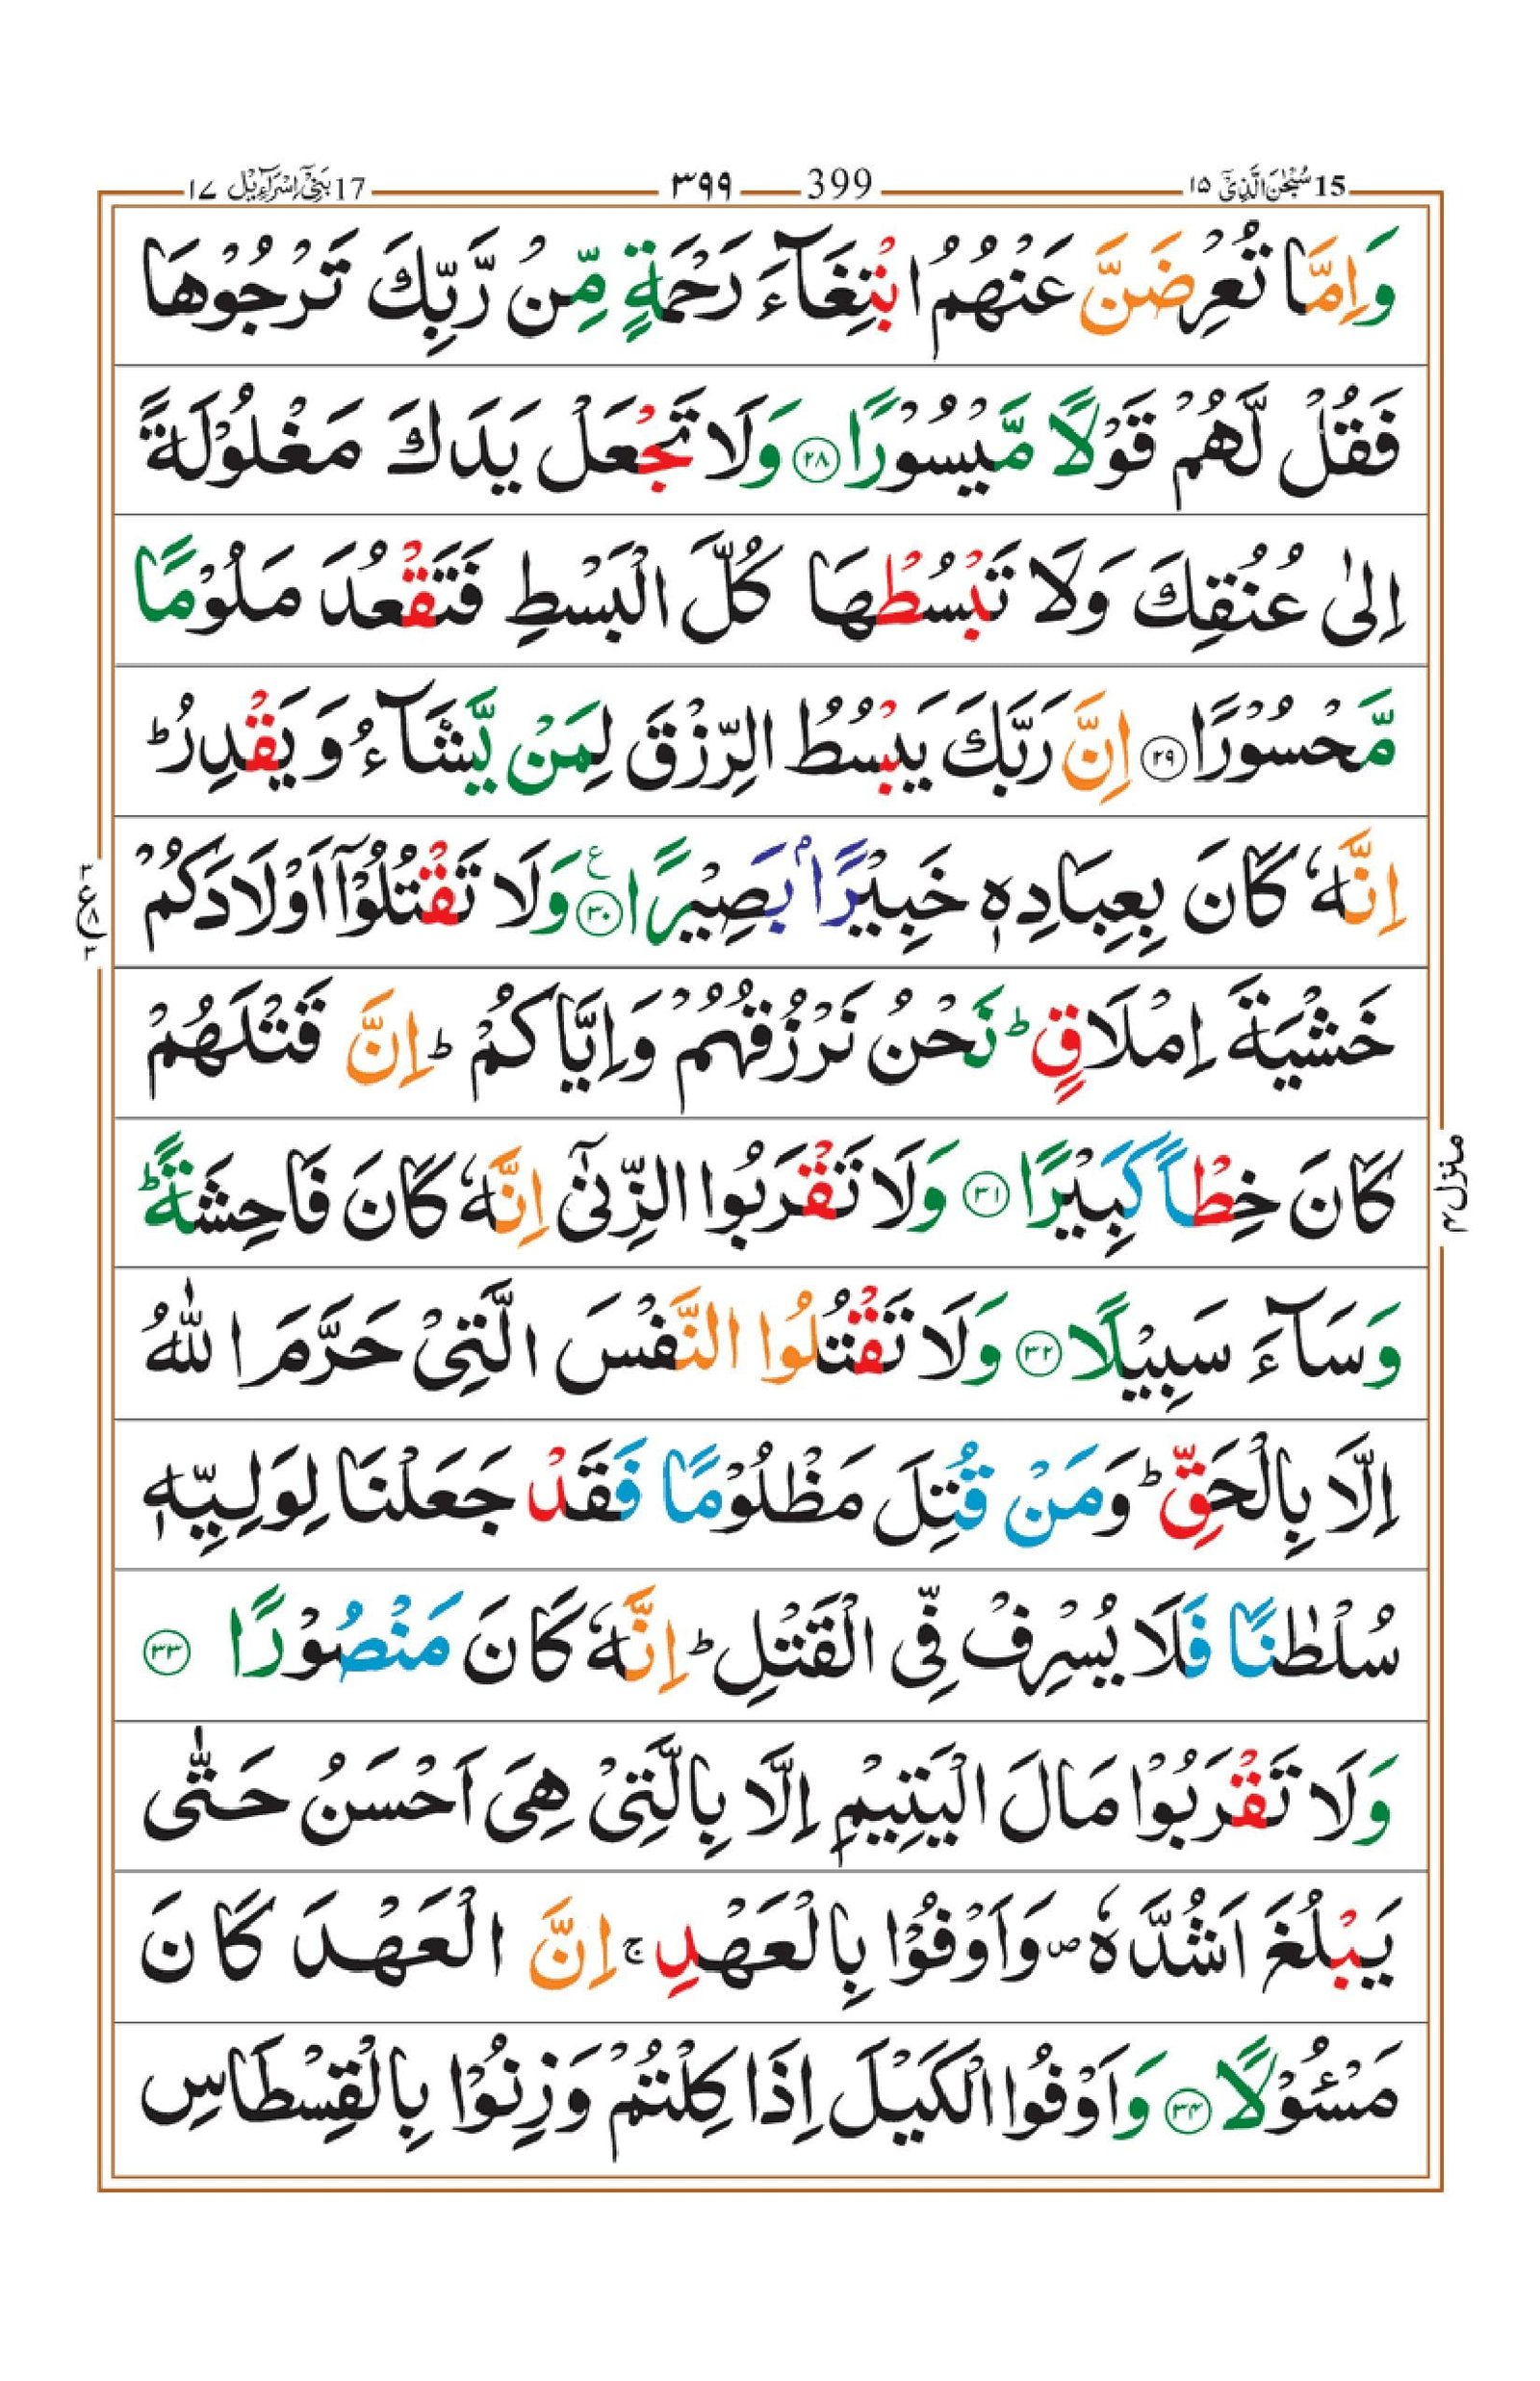 15 سُبْحٰنَ الَّذِیْۤ ١٥ 399 ٣٩٩ 17 بَنِیْۤ اِسْرَآءِیْل ١٧
وَاِمَّا تُعْرِضَنَّ عَنْهُمُ ابْتِغَآءَ رَحْمَةٍ مِّنْ رَّبِّكَ تَرْجُوْهَا
فَقُلْ لَّهُمْ قَوْلًا مَّیْسُوْرًا ﴿۲۸﴾ وَلَا تَجْعَلْ یَدَكَ مَغْلُوْلَةً
اِلٰی عُنُقِكَ وَلَا تَبْسُطْهَا كُلَّ الْبَسْطِ فَتَقْعُدَ مَلُوْمًا
مَّحْسُوْرًا ﴿۲۹﴾ اِنَّ رَبَّكَ یَبْسُطُ الرِّزْقَ لِمَنْ یَّشَآءُ وَیَقْدِرُ ؕ
اِنَّهٗ كَانَ بِعِبَادِهٖ خَبِیْرًۢا بَصِیْرًا ﴿۳۰﴾ ع وَلَا تَقْتُلُوْۤا اَوْلَادَكُمْ
٣ ع ٨ ٣
خَشْیَةَ اِمْلَاقٍ ؕ نَحْنُ نَرْزُقُهُمْ وَاِیَّاكُمْ ؕ اِنَّ قَتْلَهُمْ
كَانَ خِطْاً كَبِیْرًا ﴿۳۱﴾ وَلَا تَقْرَبُوا الزِّنٰۤی اِنَّهٗ كَانَ فَاحِشَةً ؕ
منزل ۴
وَسَآءَ سَبِیْلًا ﴿۳۲﴾ وَلَا تَقْتُلُوا النَّفْسَ الَّتِیْ حَرَّمَ اللّٰهُ
اِلَّا بِالْحَقِّ ؕ وَمَنْ قُتِلَ مَظْلُوْمًا فَقَدْ جَعَلْنَا لِوَلِیِّهٖ
سُلْطٰنًا فَلَا یُسْرِفْ فِّی الْقَتْلِ ؕ اِنَّهٗ كَانَ مَنْصُوْرًا ﴿۳۳﴾
وَلَا تَقْرَبُوْا مَالَ الْیَتِیْمِ اِلَّا بِالَّتِیْ هِیَ اَحْسَنُ حَتّٰی
یَبْلُغَ اَشُدَّهٗ ۪ وَاَوْفُوْا بِالْعَهْدِ ۚ اِنَّ الْعَهْدَ كَانَ
مَسْـُٔوْلًا ﴿۳۴﴾ وَاَوْفُوا الْكَیْلَ اِذَا كِلْتُمْ وَزِنُوْا بِالْقِسْطَاسِ